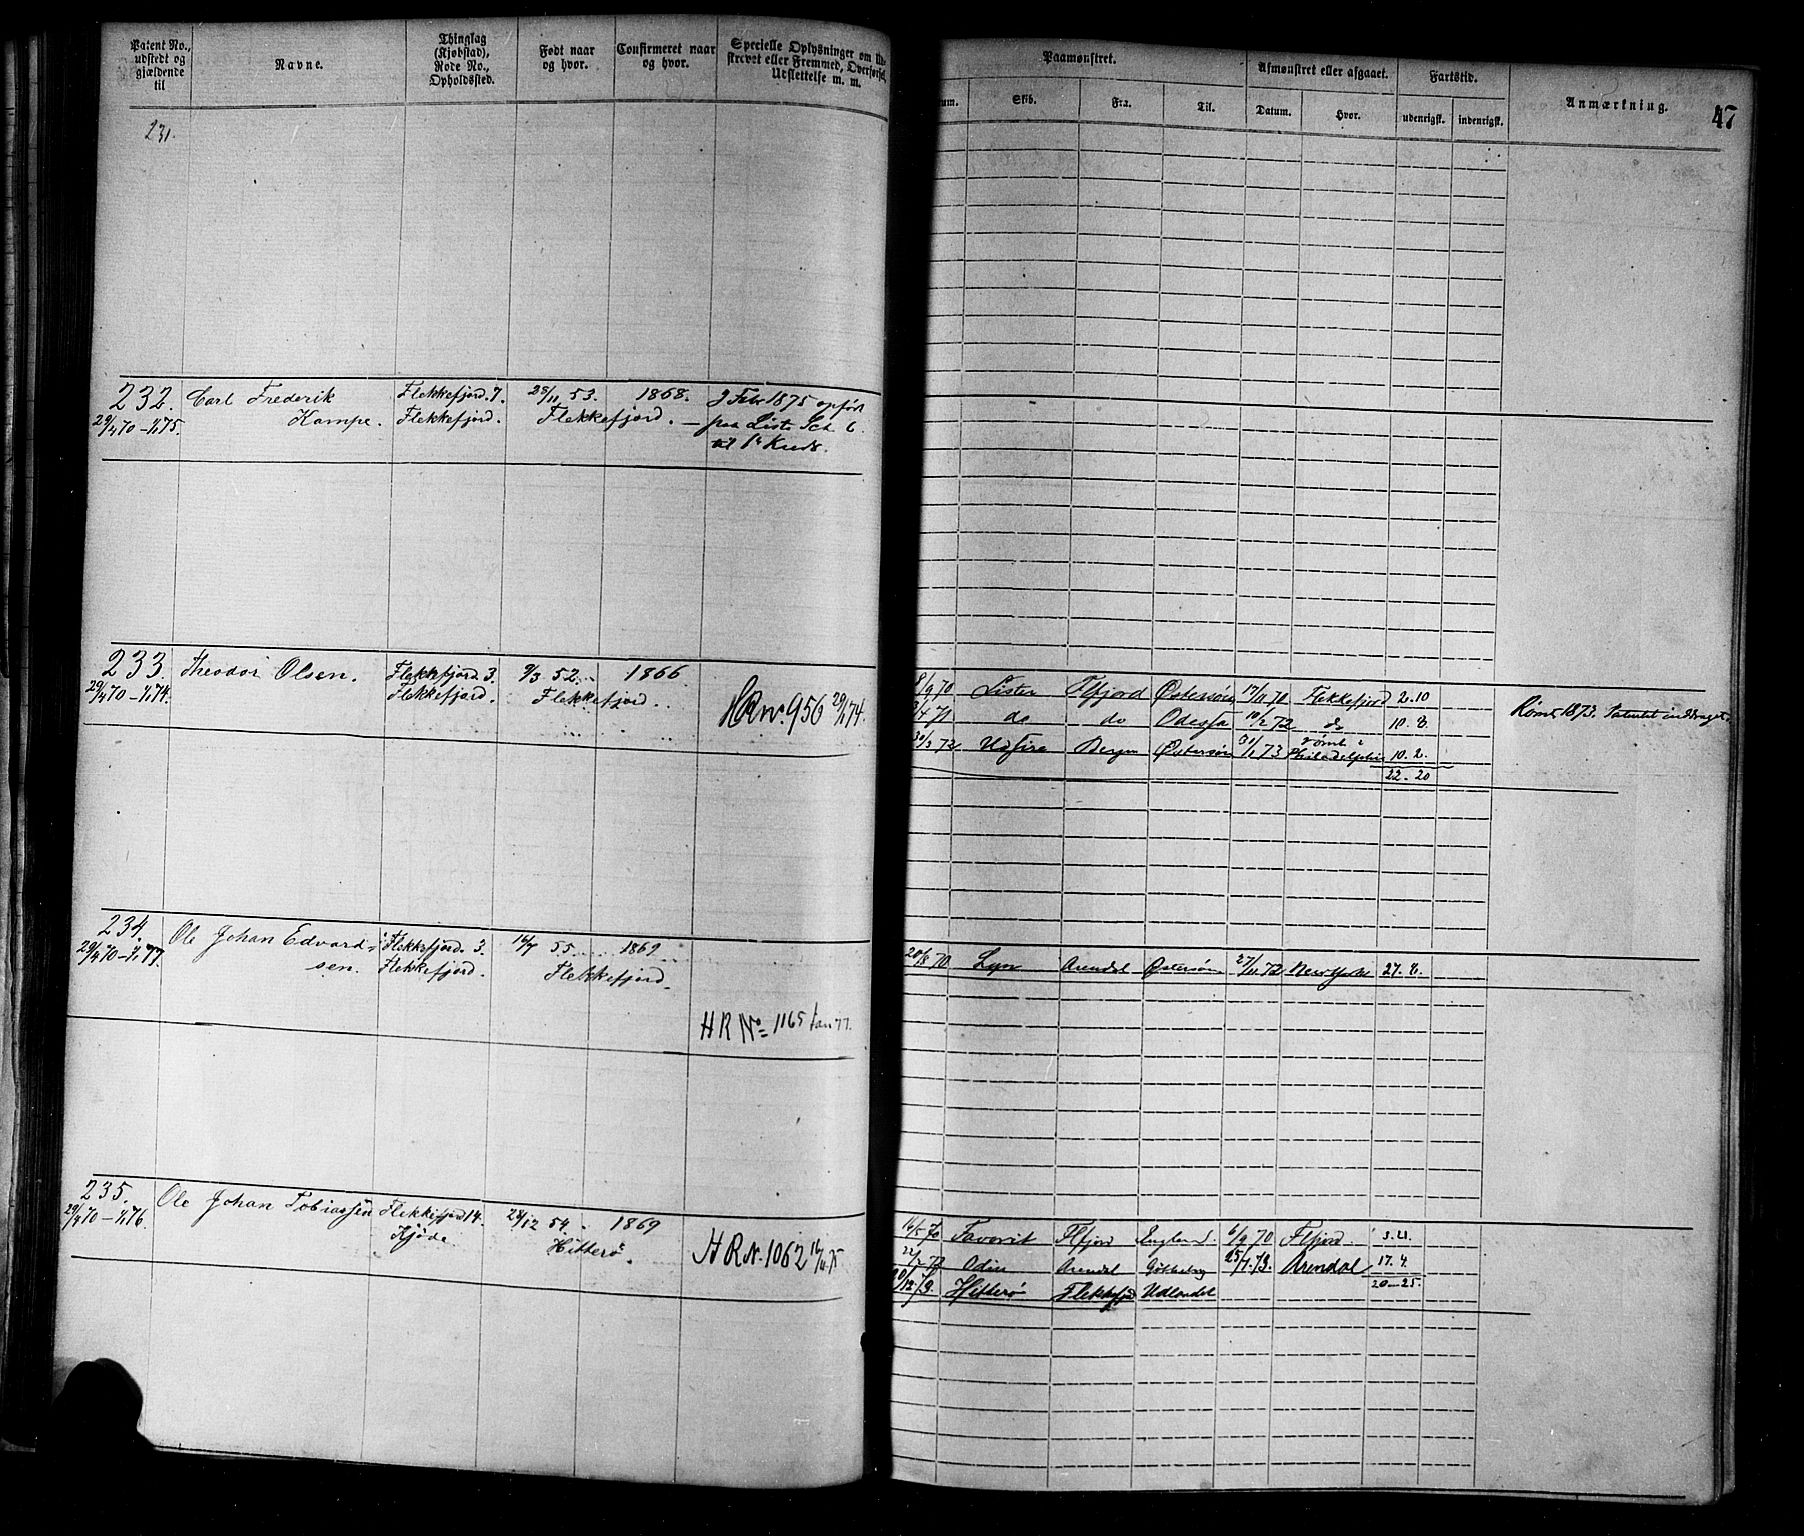 Patent No., udstedt og gjældende til
Navne.
Thinglag (Kjøbstad), Rode No., Opholdssted.
Født naar og hvor.
Confirmeret naar og hvor.
Specielle Oplysninger om
strevet eller Fremmed, Overførsel,
Udslettelse m. m.
Paamønstret.
Afmønstret eller afgaaet.
Fartstid.
Anmærkning.
47
um.
Skib.
Fra.
Til.
Datum.
Hvor.
udenrigsk.
indenrigsk.
231.
232. Carl Frederik Flekkefjord. 7. 28/11 53. 1868. 9 Feb 1875 opført
29/4 70 – 1/1 75. Kampe. Flekkefjord. Flekkefjord. – paa Liste Sct 6.
233. Theodor Olsen. Flekkefjord 3. 9/3 52. 1866
29/4 70 – 1/1 74. Flekkefjord. Flekkefjord. 956 29/1 74.
9 70 Lister Flfjord Østersøen 17/11 70 Flekkefjord 2.10
4 71 do do Odessa 10/2 72 do 10.8 Rømt 1873. Patentet inddraget.
30/3 72 Bergen Østersøen 31/1 73 rømt i Philadelphia 10.2.
22.20
234. Ole Johan Edvard- Flekkefjord. 3. 16/7 55 1869
29/4 70 – 1/1 77. sen. Flekkefjord. Flekkefjord.
HR No 1165 Jan 77.
20/8 70 Lyn Arendal Østersøen 27/11 72 New York 27.8.
235. Ole Johan Tobiassen Flekkefjord 14. 24/12 54. 1869
29/4 70 – 1/1 76. Kjøde Hitterø HR No. 1062
16/5 70 Favorit Flfjord England 6/9 70 Flfjord 3.21.
Odin Arendal Gøtheborg 73. Arendal 17.4.
Hitterø Flekkefjd Udlandet 20–25.